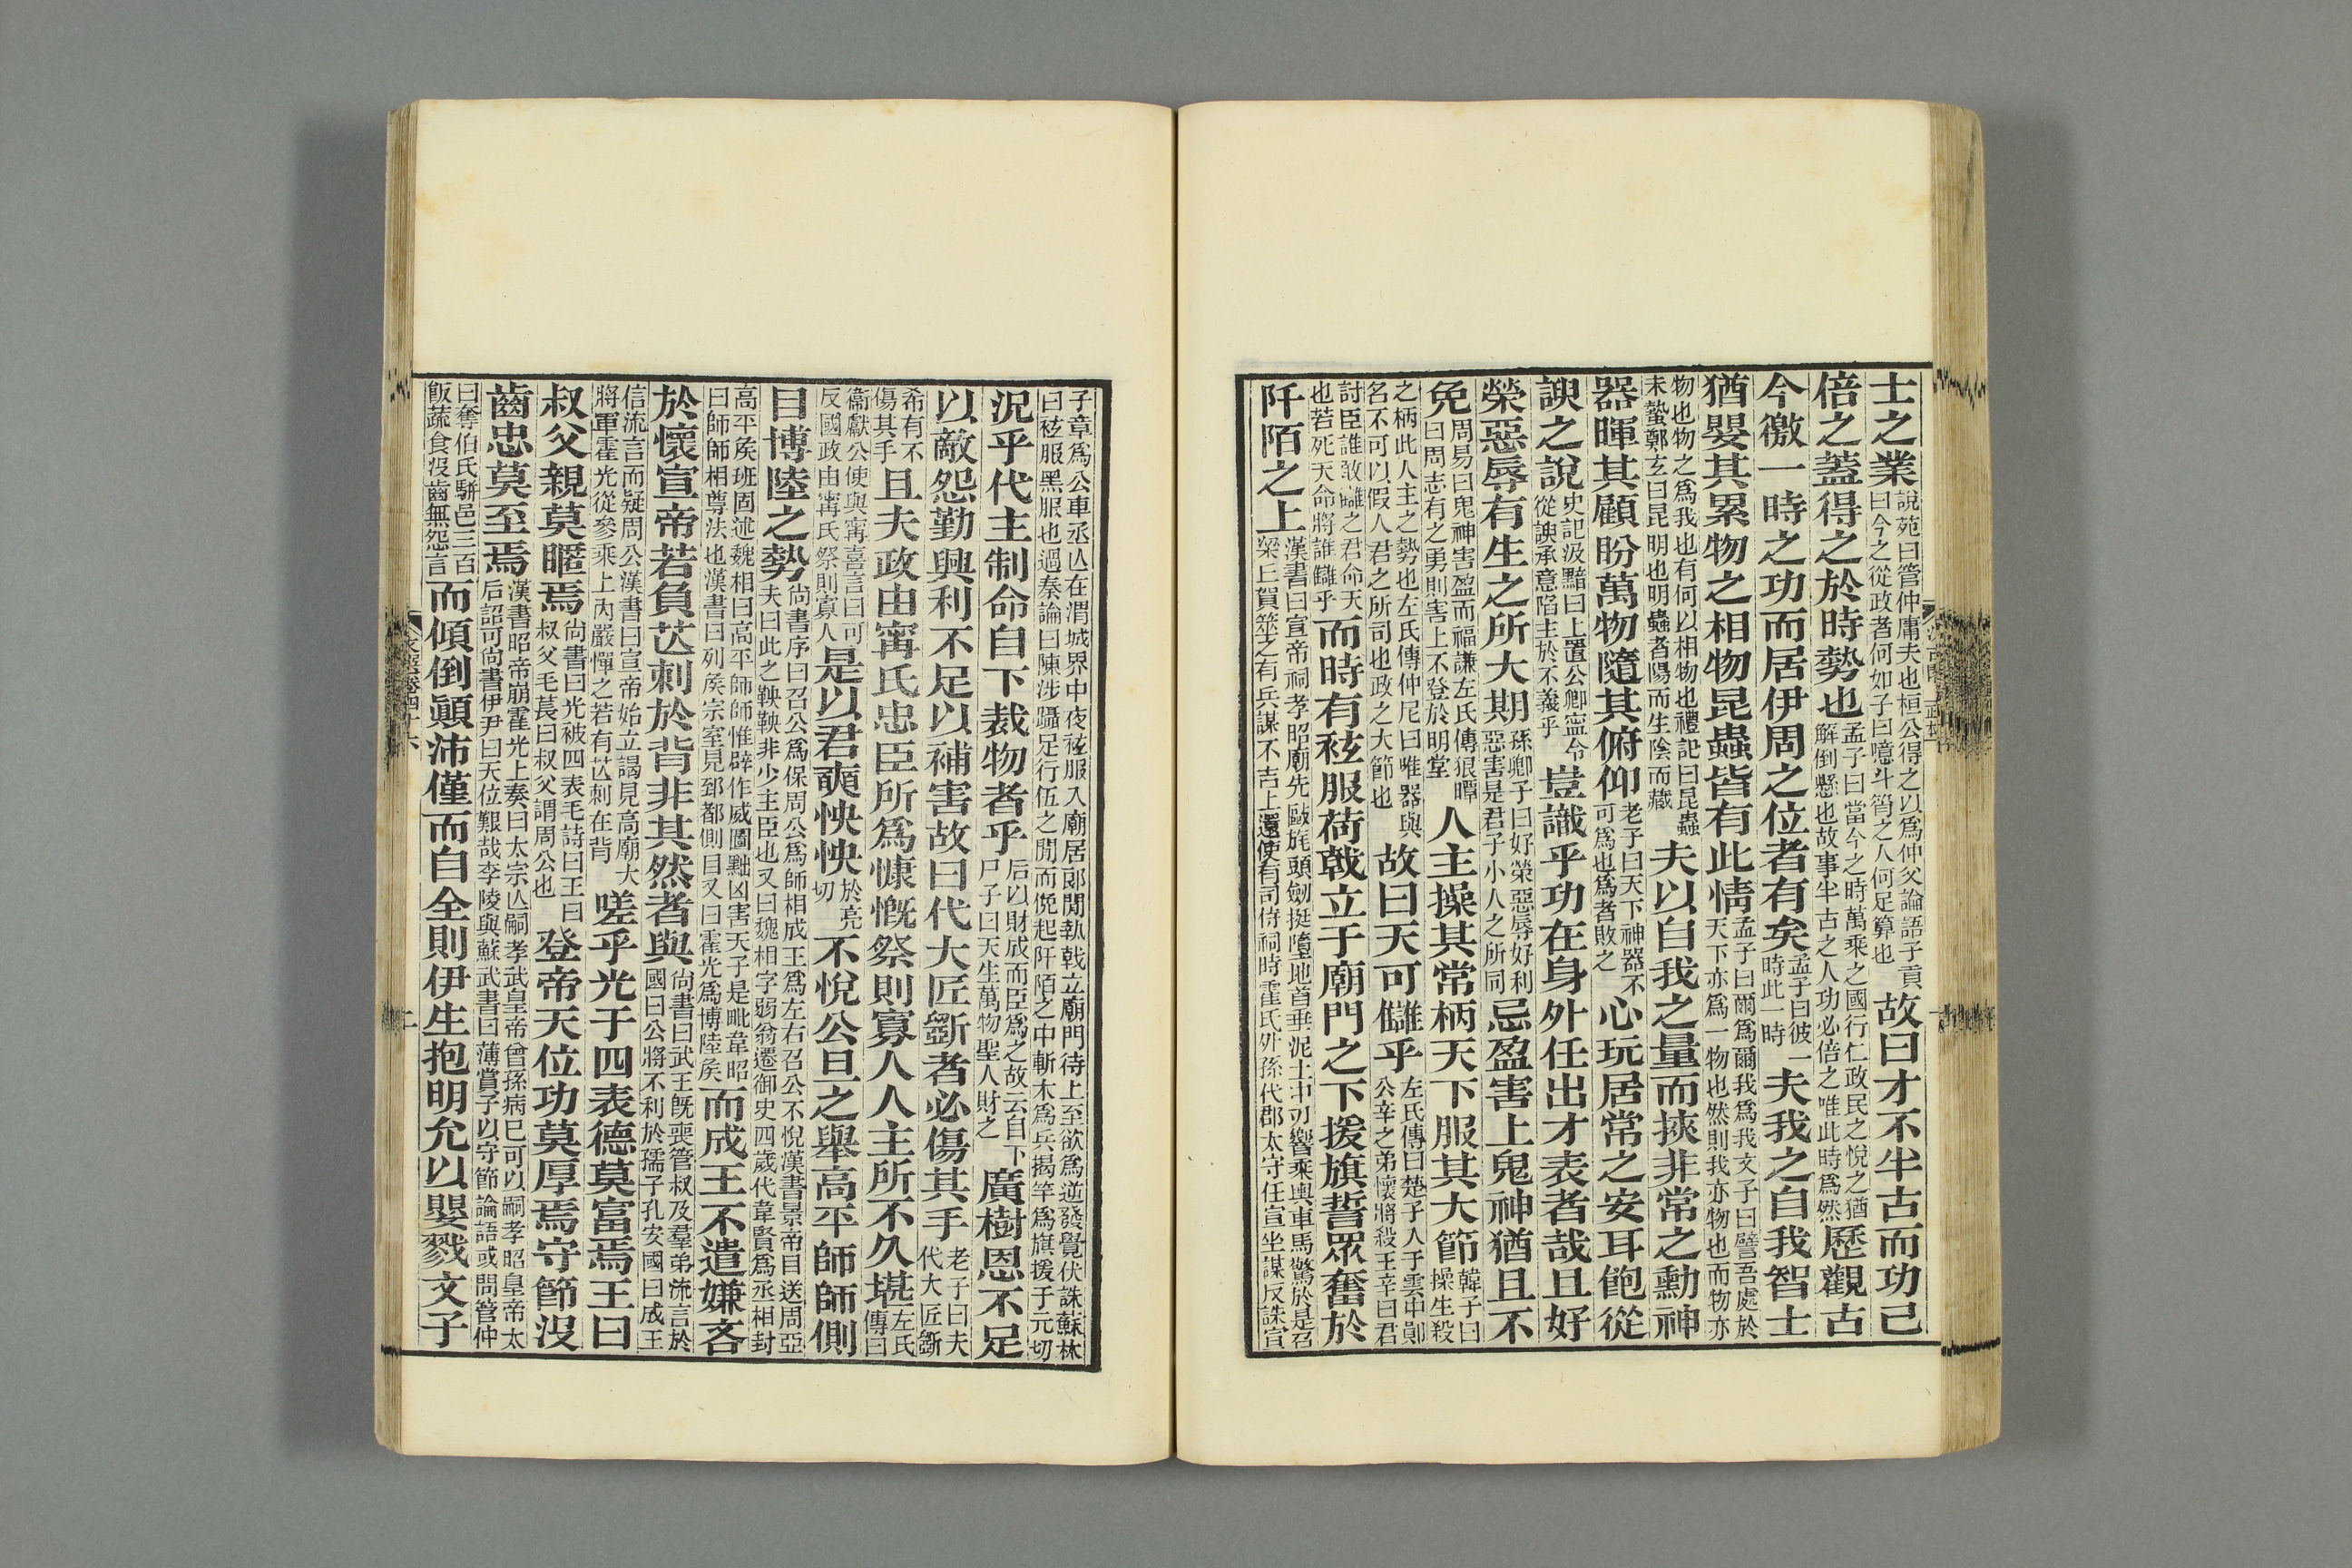 士之業說苑曰管仲庸夫也桓公得之以爲仲父論語子貢曰今之從政者何如子曰噫斗筲之人何足算也故曰才不半古而功已
倍之蓋得之於時勢也孟子曰當今之時萬乘之國行仁政民之悅之猶解倒懸也故事半古之人功必倍之唯此時爲然歷觀古
今徼一時之功而居伊周之位者有矣孟子曰彼一時此一時夫我之自我智士
猶嬰其累物之相物昆蟲皆有此情孟子曰爾爲爾我爲我文子曰譬吾處於天下亦爲一物也然則我亦物也而物亦
物也物之爲我也有何以相物也禮記曰昆蟲未蟄鄭玄曰昆明也明蟲者陽而生陰而藏夫以自我之量而挾非常之勳神
器暉其顧盼萬物隨其俯仰老子曰天下神器不可爲也爲者敗之心玩居常之安耳飽從
諛之說史記汲黯曰上置公卿寧令從諛承意陷主於不義乎豈識乎功在身外任出才表者哉且好
榮惡辱有生之所大期孫卿子曰好榮惡辱好利惡害是君子小人之所同忌盈害上鬼神猶且不
免周易曰鬼神害盈而福謙左氏傳狼瞫曰周志有之勇則害上不登於明堂人主操其常柄天下服其大節韓子曰操生殺
之柄此人主之勢也左氏傳仲尼曰唯器與名不可以假人君之所司也政之大節也故曰天可讎乎左氏傳曰楚子入于雲中鄖公辛之弟懷將殺王辛曰君
討臣誰敢讎之君命天也若死天命將誰讎乎而時有袨服荷戟立于廟門之下援旗誓眾奮於
阡陌之上漢書曰宣帝祠孝昭廟先敺旄頭劒挺墮地首垂泥土中刃響乘輿車馬驚於是召梁丘賀筮之有兵謀不吉上還使有司侍祠時霍氏外孫代郡太守任宣坐謀反誅宣
子章爲公車丞亾在渭城界中夜袨服入廟居郎閒執戟立廟門待上至欲爲逆發覺伏誅蘇林曰袨服黑服也過秦論曰陳涉躡足行伍之閒而俛起阡陌之中斬木爲兵揭竿爲旗援于元切
況乎代主制命自下裁物者乎后以財成而臣爲之故云自下尸子曰天生萬物聖人財之廣樹恩不足
以敵怨勤興利不足以補害故曰代大匠斵者必傷其手老子曰夫代大匠斵
希有不傷其手且夫政由甯氏忠臣所爲慷慨祭則寡人人主所不久堪左氏傳曰
衞獻公使與甯喜言曰可反國政由甯氏祭則寡人是以君奭怏怏於亮切不悅公旦之舉高平師師側
目博陸之勢尚書序曰召公爲保周公爲師相成王爲左右召公不悅漢書景帝目送周亞夫曰此之鞅鞅非少主臣也又曰魏相字弱翁遷御史四歲代韋賢爲丞相封
高平矦班固述魏相曰高平師師惟辟作威圖黜凶害天子是毗韋昭曰師師相尊法也漢書曰列矦宗室見郅都側目又曰霍光爲博陸矦而成王不遣嫌吝
於懷宣帝若負芒刺於背非其然者與尚書曰武王旣喪管叔及羣弟流言於國曰公將不利於孺子孔安國曰成王
信流言而疑周公漢書曰宣帝始立謁見高廟大將軍霍光從參乘上內嚴憚之若有芒刺在背嗟乎光于四表德莫富焉王曰
叔父親莫暱焉尚書曰光被四表毛詩曰王曰叔父毛萇曰叔父謂周公也登帝天位功莫厚焉守節沒
齒忠莫至焉漢書昭帝崩霍光上奏曰太宗亾嗣孝武皇帝曾孫病已可以嗣孝昭皇帝太后詔可尚書伊尹曰天位艱哉李陵與蘇武書曰薄賞子以守節論語或問管仲
曰奪伯氏駢邑三百飯蔬食沒齒無怨言而傾倒顚沛僅而自全則伊生抱明允以嬰戮文子